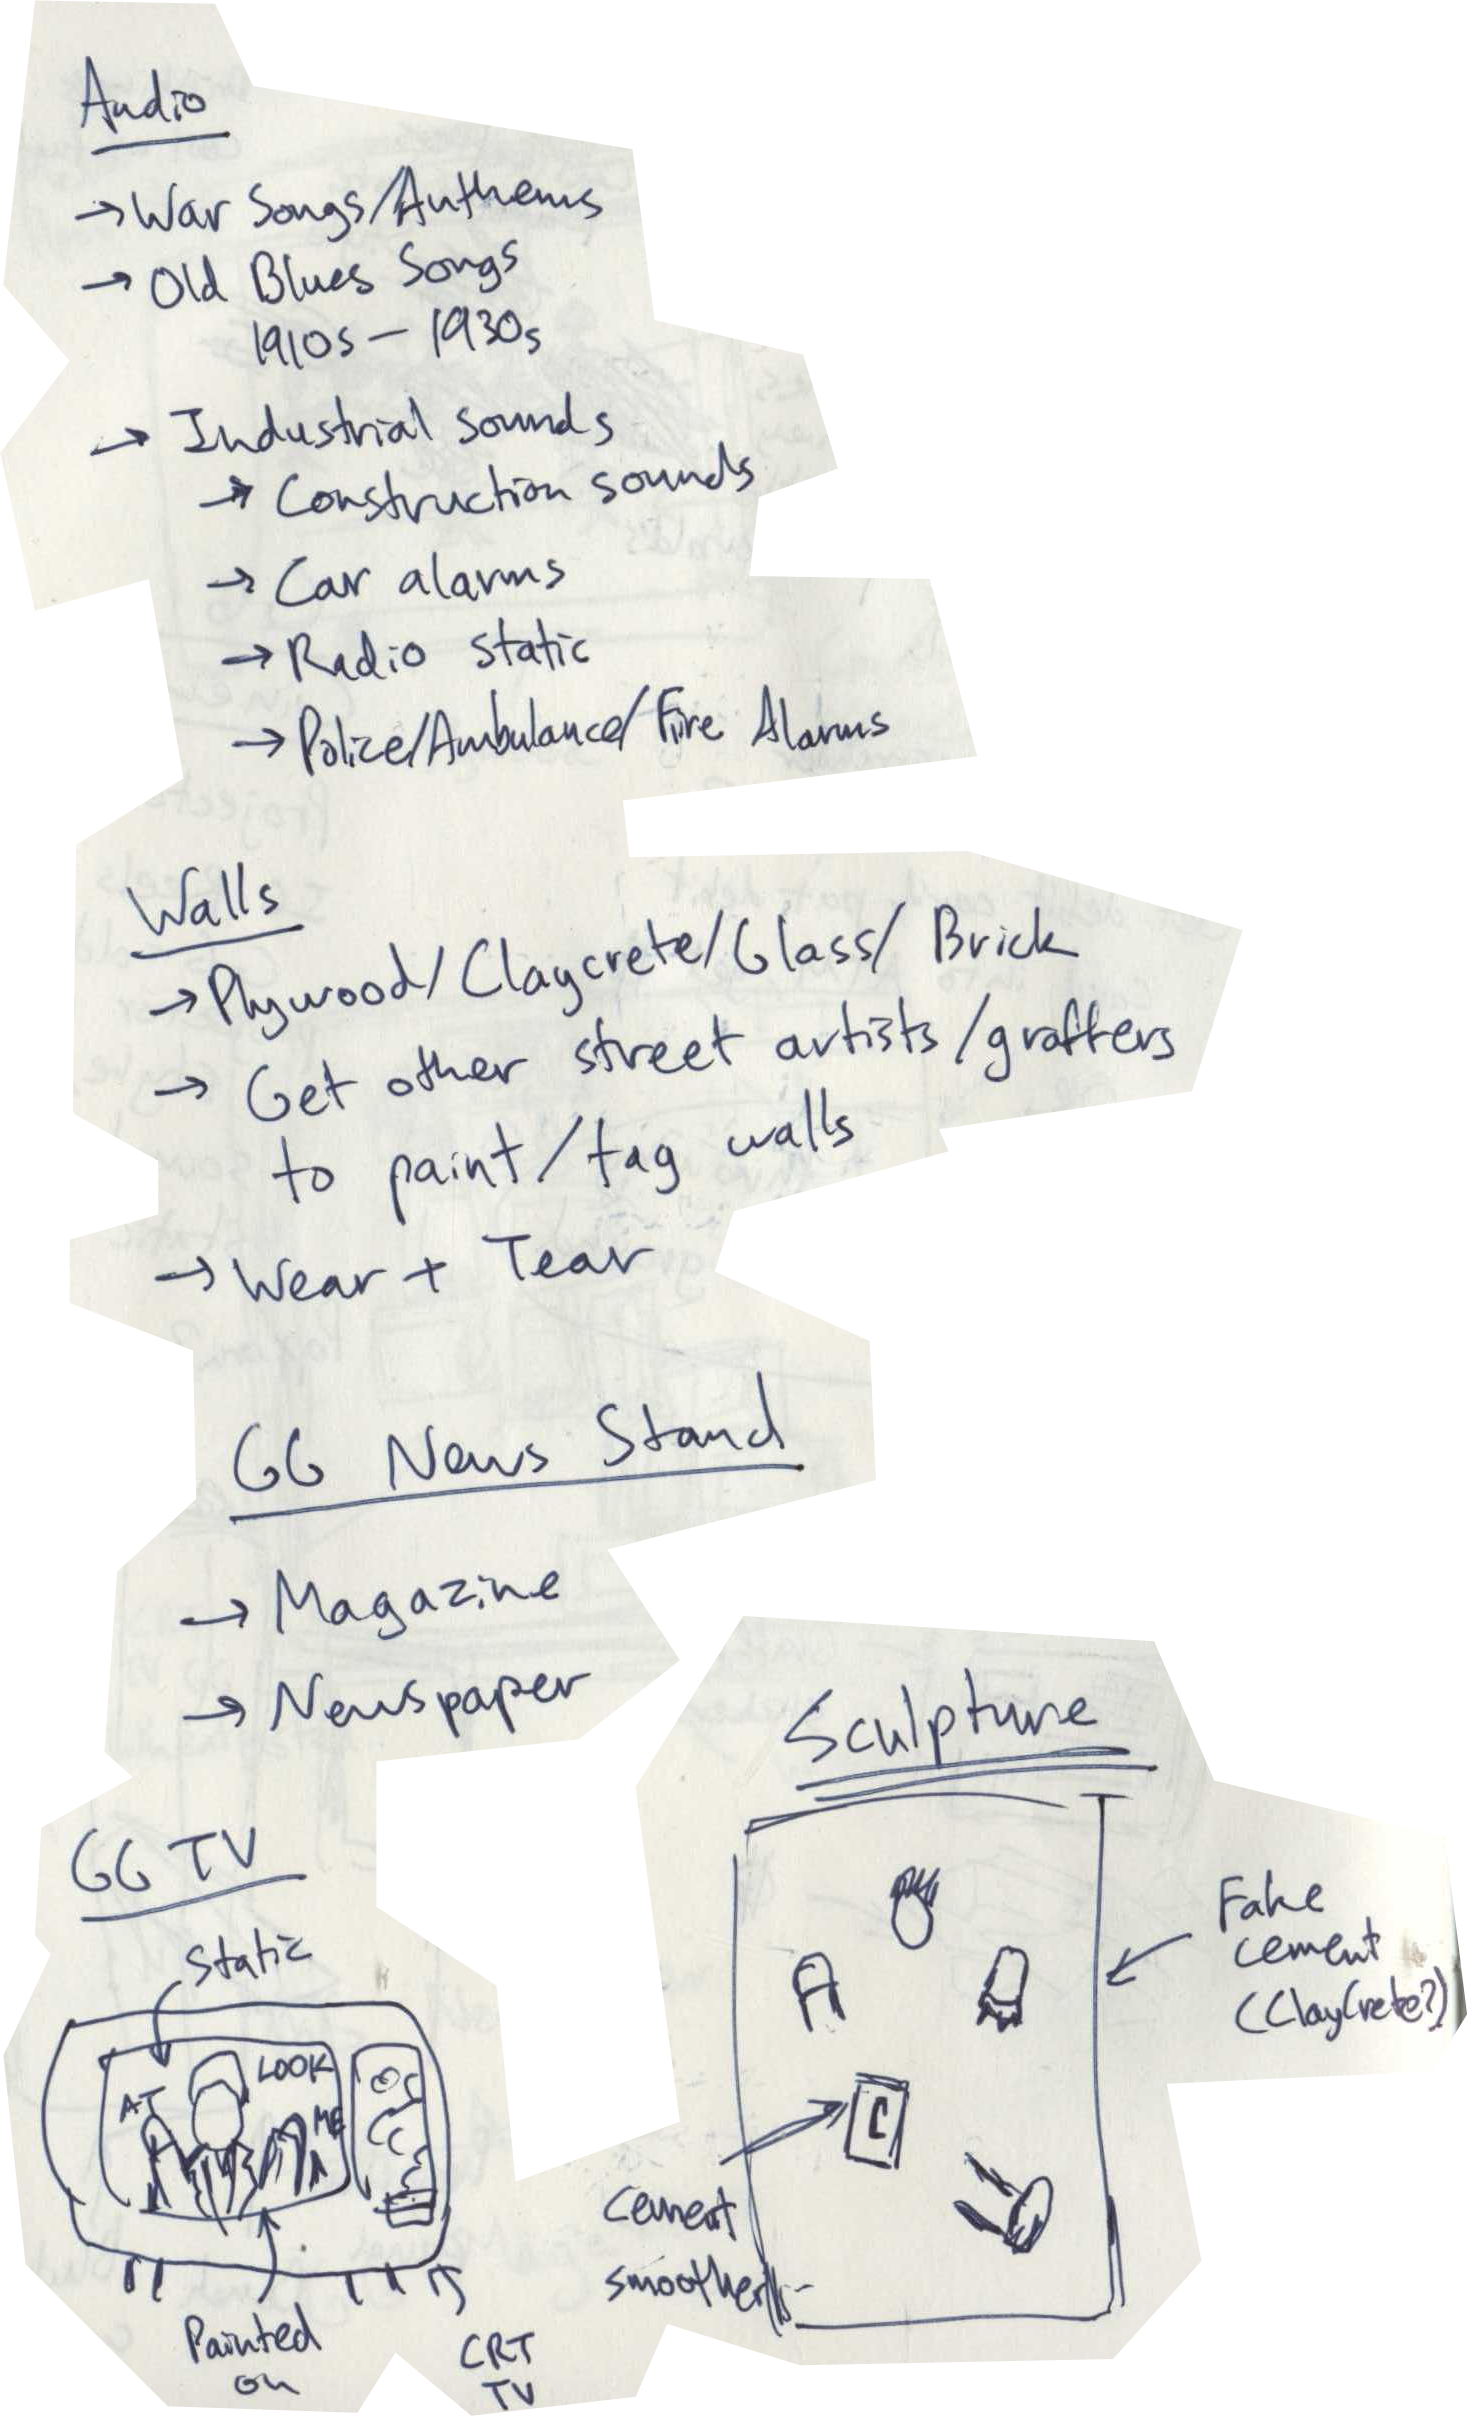 Audio
→ War Songs/Anthems
→ Old Blues Songs
1910s – 1930s
→ Industrial sounds
→ Construction sounds
→ Car alarms
→ Radio static
→ Police/Ambulance/Fire Alarms
Walls
→ Plywood/Claycrete/Glass/Brick
→ Get other street artists/graffers
to paint/tag walls
→ Wear + Tear
GG News Stand
→ Magazine
→ Newspaper
GG TV
Static
LOOK
AT
ME
Painted
on
CRT
TV
Sculpture
Fake
cement
(ClayCrete?)
C
Cement
smoother